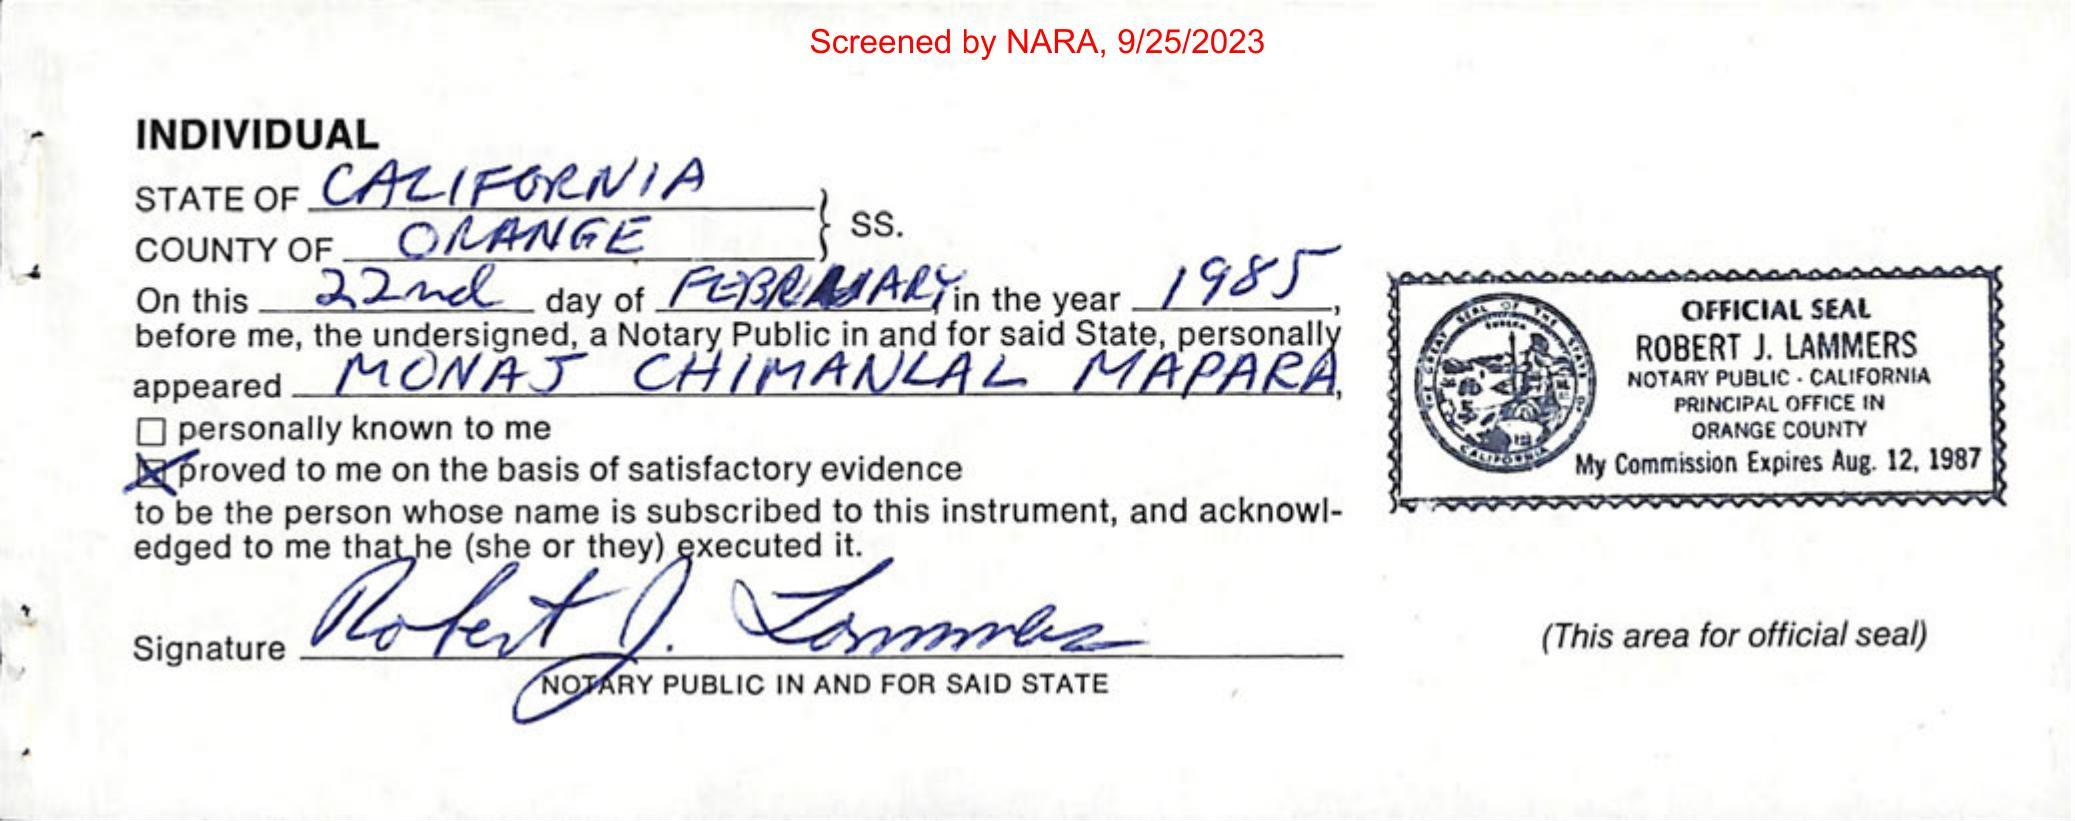 Screened by NARA, 9/25/2023
INDIVIDUAL
STATE OF CALIFORNIA
COUNTY OF ORANGE
SS.
On this 22nd day of FEBRUARY, in the year 1985,
before me, the undersigned, a Notary Public in and for said State, personally
appeared MONAJ CHIMANLAL MAPARA,
☐ personally known to me
☒ proved to me on the basis of satisfactory evidence
to be the person whose name is subscribed to this instrument, and acknowl-
edged to me that he (she or they) executed it.
Signature Robert J. Lammers
NOTARY PUBLIC IN AND FOR SAID STATE
OFFICIAL SEAL
ROBERT J. LAMMERS
NOTARY PUBLIC - CALIFORNIA
PRINCIPAL OFFICE IN
ORANGE COUNTY
My Commission Expires Aug. 12, 1987
THE GREAT SEAL OF THE STATE OF CALIFORNIA
EUREKA
(This area for official seal)